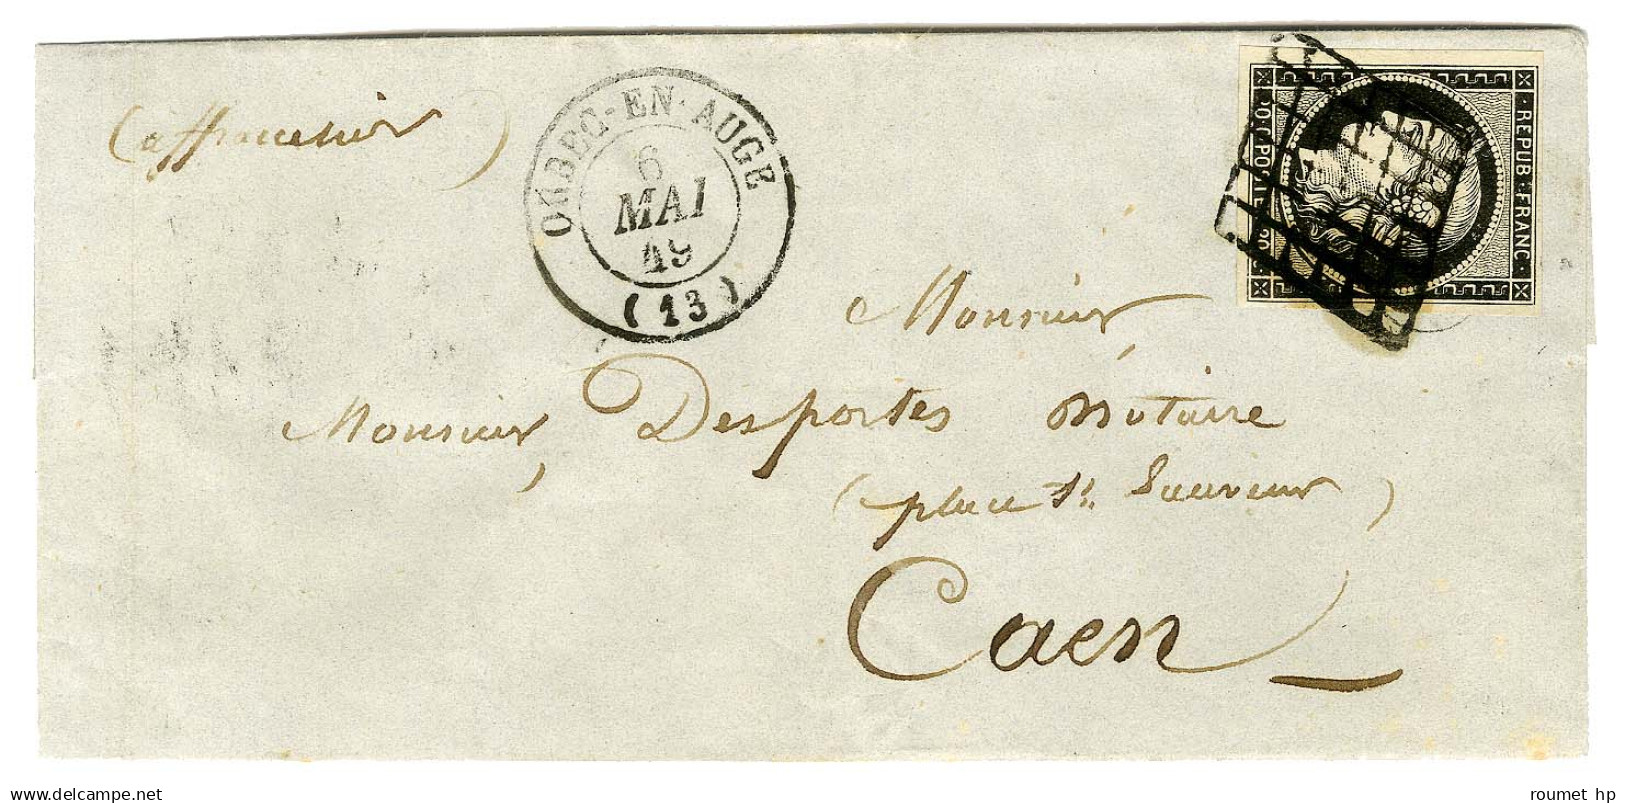 (affranchir)
ORBEC-EN-AUGE
6
MAI
49
(13)
REPUB·FRANC·
20·C·POSTE
Monsieur
Monsieur, Desportes Notaire
(place St. Sauveur)
Caen
roumet hp
delcampe.net